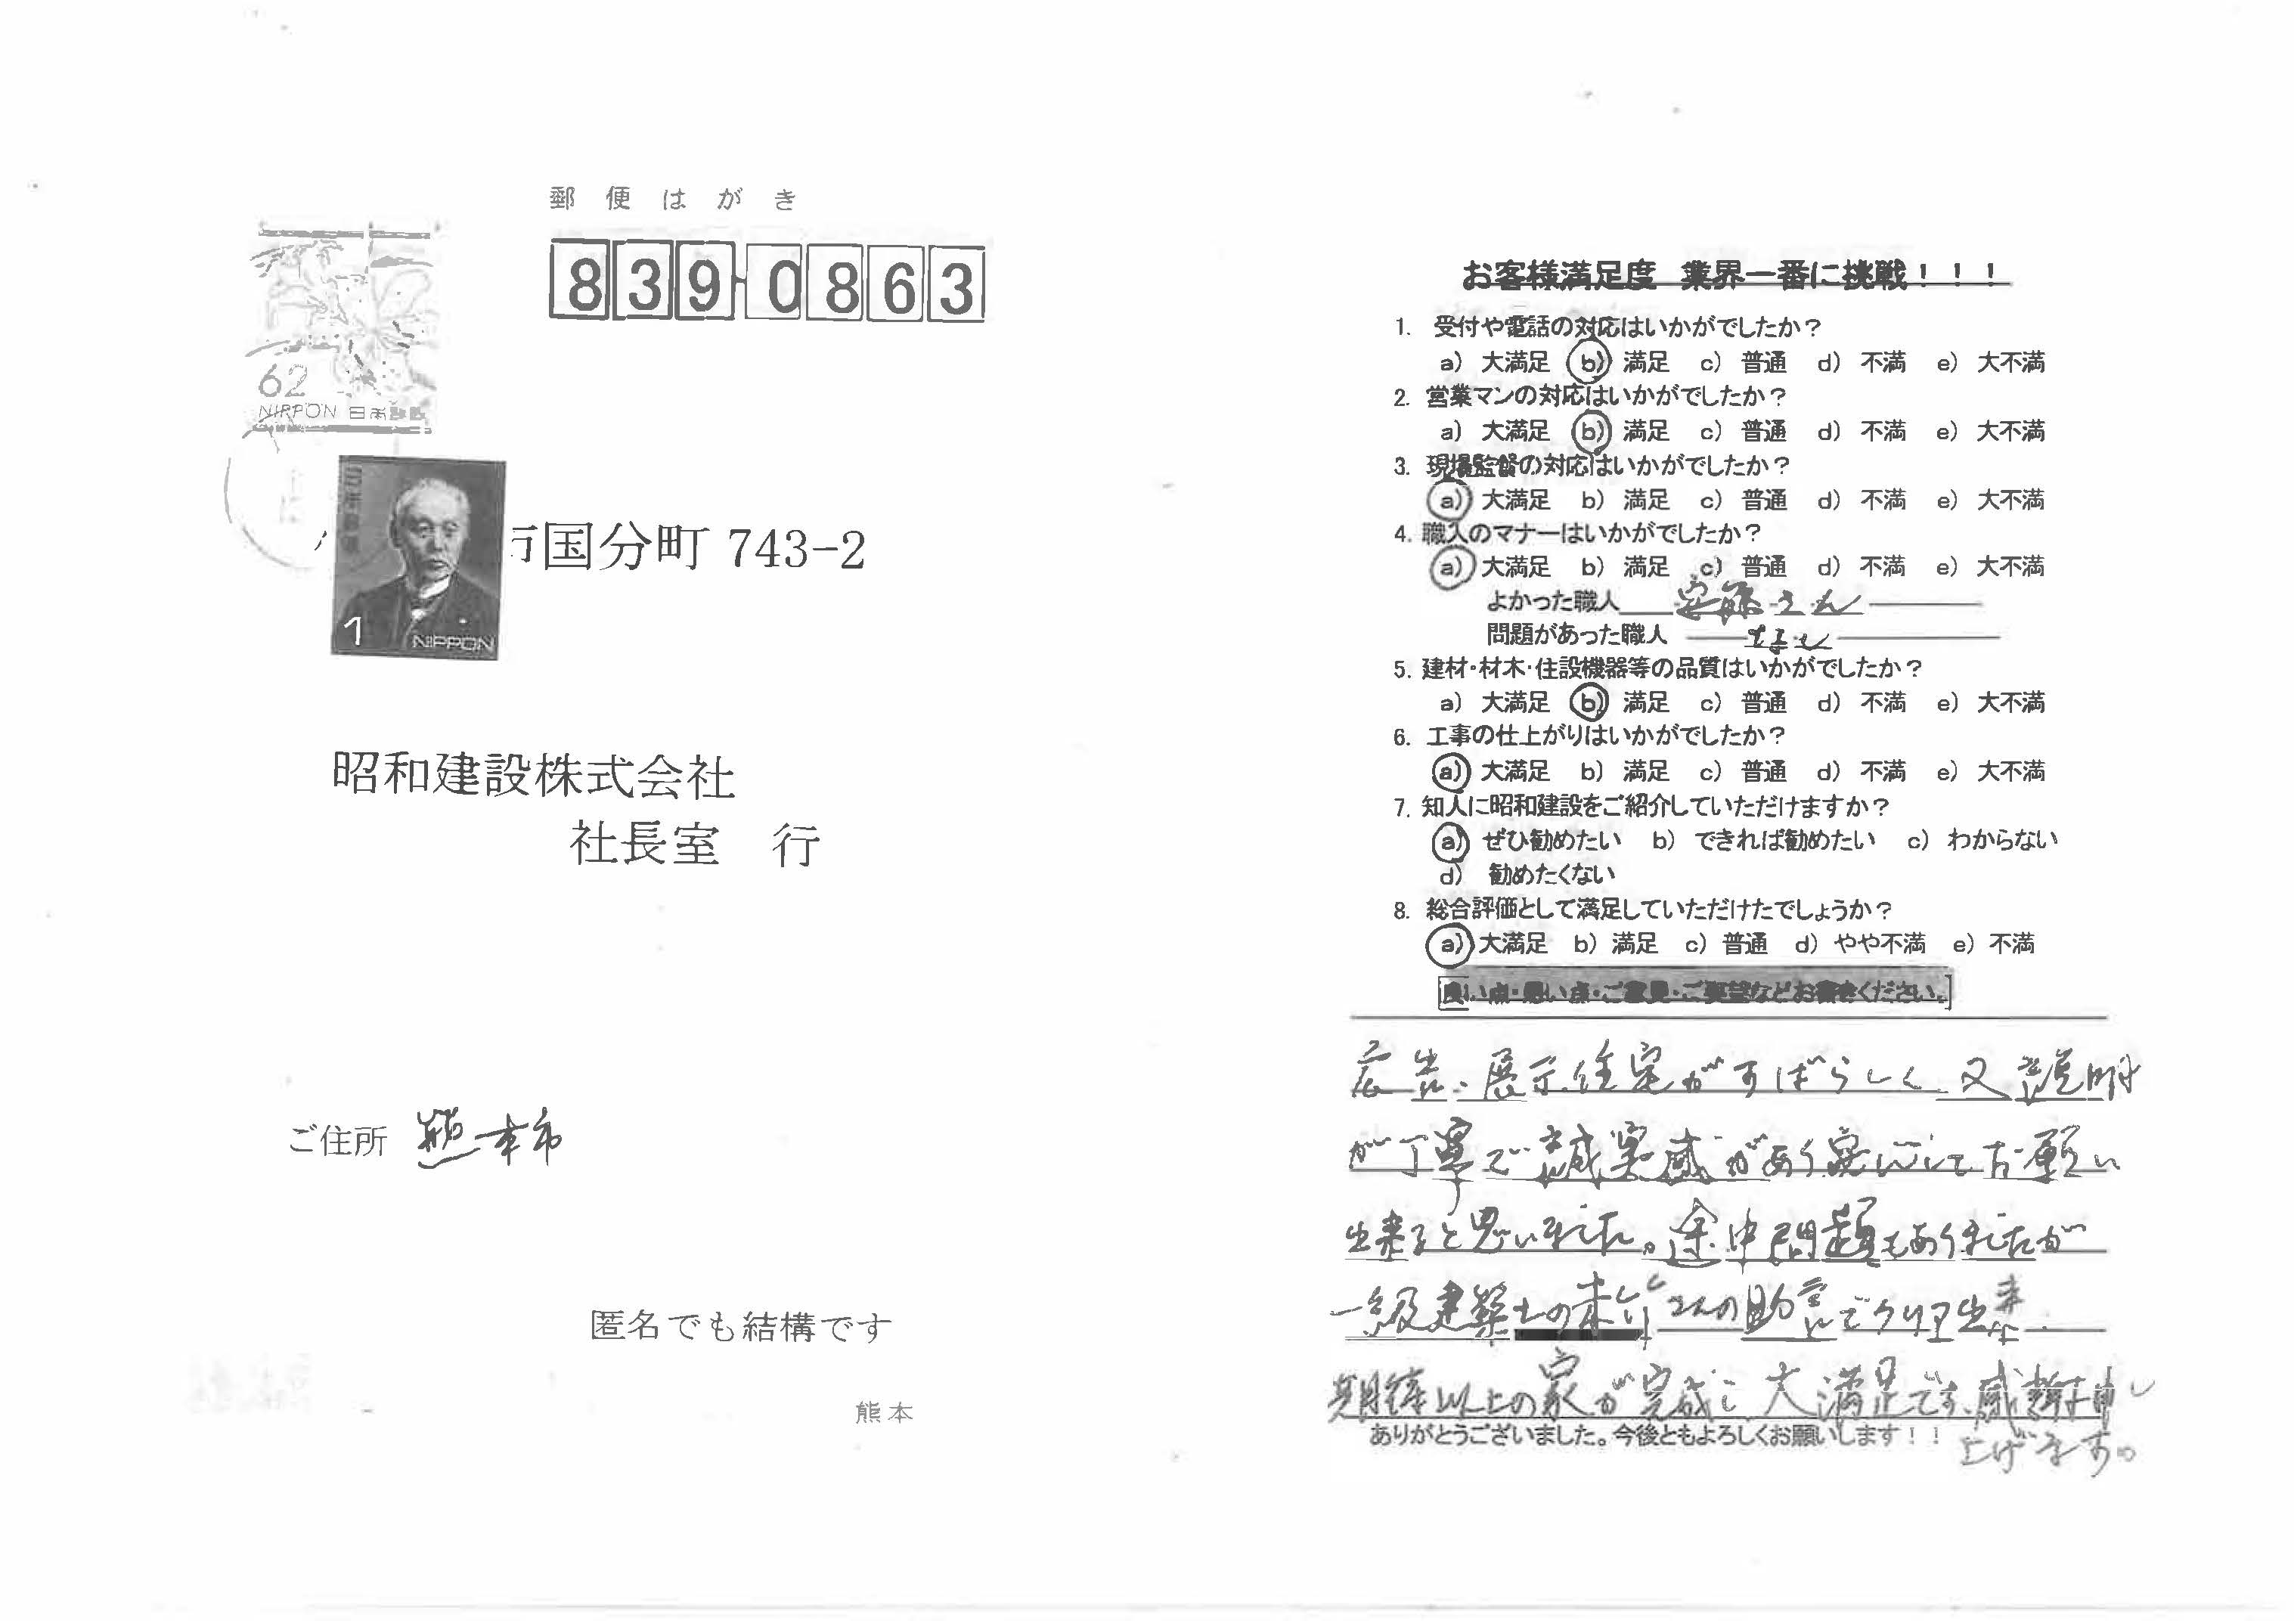 郵便はがき
839-0863
62
NIPPON 日本郵便
日本郵便
1
NIPPON
国分町 743-2
昭和建設株式会社
社長室 行
ご住所 熊本市
匿名でも結構です
熊本
お客様満足度 業界一番に挑戦!!!
1. 受付や電話の対応はいかがでしたか?
a) 大満足 b) 満足 c) 普通 d) 不満 e) 大不満
2. 営業マンの対応はいかがでしたか?
a) 大満足 b) 満足 c) 普通 d) 不満 e) 大不満
3. 現場監督の対応はいかがでしたか?
a) 大満足 b) 満足 c) 普通 d) 不満 e) 大不満
4. 職人のマナーはいかがでしたか?
a) 大満足 b) 満足 c) 普通 d) 不満 e) 大不満
よかった職人 安藤さん
問題があった職人 なし
5. 建材・材木・住設機器等の品質はいかがでしたか?
a) 大満足 b) 満足 c) 普通 d) 不満 e) 大不満
6. 工事の仕上がりはいかがでしたか?
a) 大満足 b) 満足 c) 普通 d) 不満 e) 大不満
7. 知人に昭和建設をご紹介していただけますか?
a) ぜひ勧めたい b) できれば勧めたい c) わからない
d) 勧めたくない
8. 総合評価として満足していただけたでしょうか?
a) 大満足 b) 満足 c) 普通 d) やや不満 e) 不満
良い点・悪い点・ご意見・ご要望などお書きください。
広告、展示住宅がすばらしく又説明
が丁寧で誠実感があり安心してお願い
出来ると思いました。途中問題もありましたが
一級建築士の さんの助言でクリア出来
期待以上の家が完成し大満足です。感謝申し
上げます。
ありがとうございました。今後ともよろしくお願いします!!